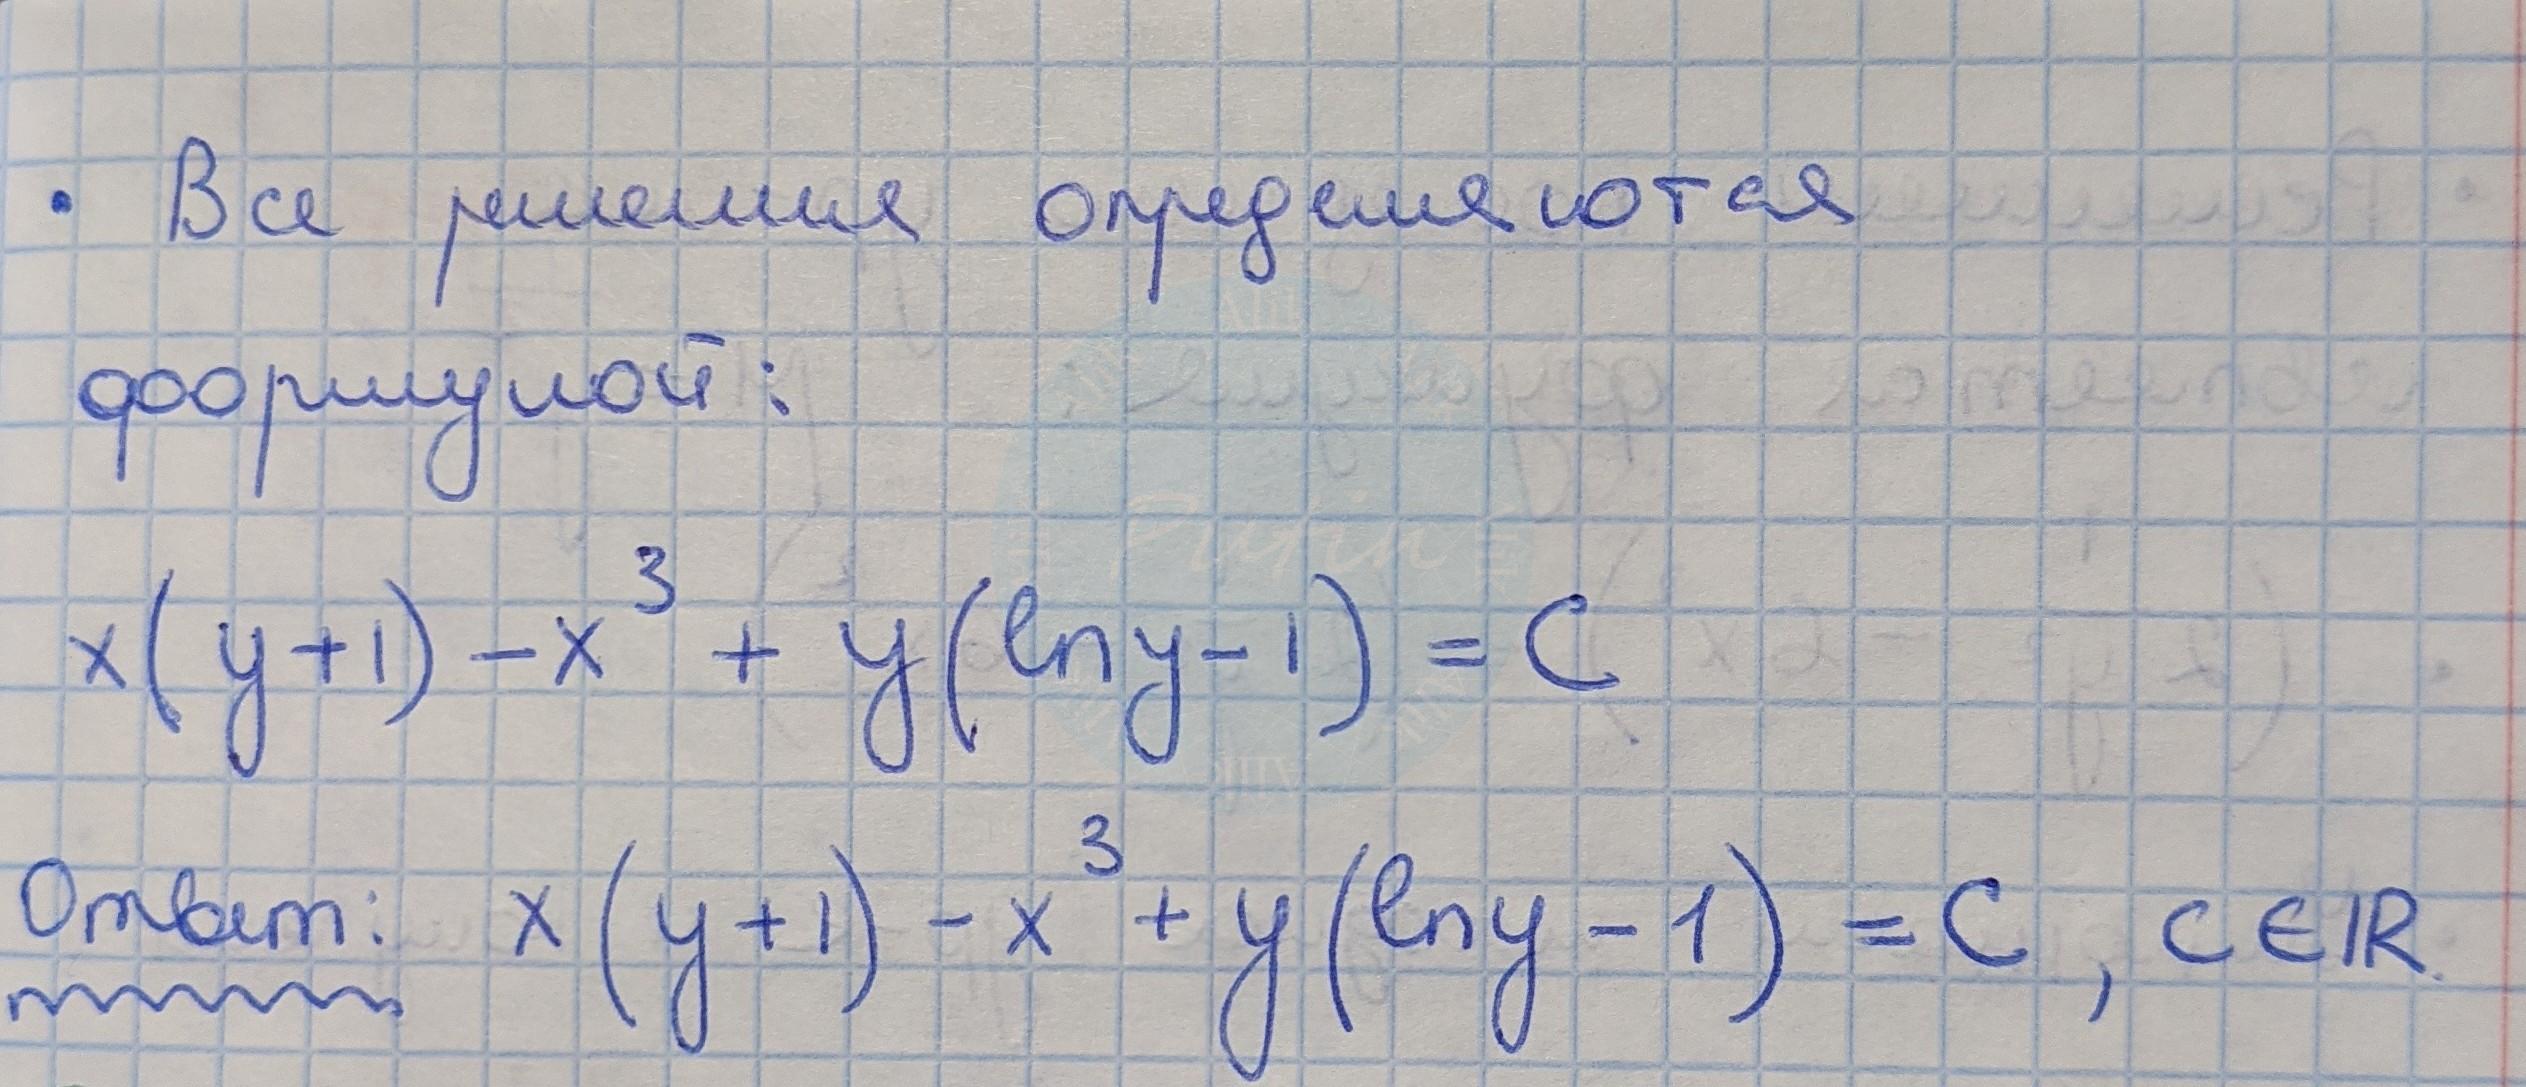 • Все решения определяются
формулой:
x(y+1) - x³ + y(ln y - 1) = C
Ответ: x(y+1) - x³ + y(ln y - 1) = C, C ∈ ℝ.